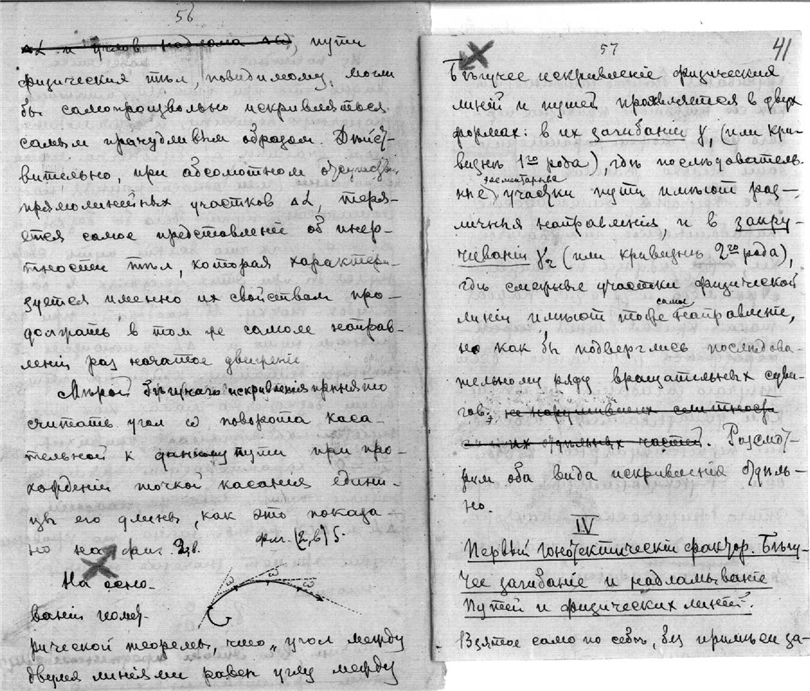 56
пути
физическия тѣл, повидимому, могли
бы самопроизвольно искривляться
самым причудливым образом. Дѣйст-
вительно, при абсолютном отсутствіи
прямолинейных участков ΔL, теря-
ется самое представленіе об инер-
тности тѣл, которая характери-
зуется именно их свойством про-
должать в том же самом направ-
леніи раз начатое движеніе.
Мѣрой бѣгучаго искривленія принято
считать угол ω поворота каса-
тельной к данному пути при про-
хожденіи точкой касанія едини-
цы его длины, как это показа-
но на фиг.
ω ω
На осно-
ваніи геомет-
рической теоремы, что „угол между
двумя линіями равен углу между
57
41
Бѣгучее искривленіе физическия
линій и путей проявляется в двух
формах: в их загибаніи γ₁ (или кри-
визнѣ 1го рода), гдѣ послѣдователь-
ные элементарные участки пути имѣют раз-
личныя направленія, и в закру-
чиваніи γ₂ (или кривизнѣ 2го рода),
гдѣ смежные участки физической
линіи имѣют тоже самое направленіе,
но как бы подверглись послѣдова-
тельному ряду вращательных сдви-
гов. Разсмот-
рим оба вида искривленія отдѣль-
но.
IV
Первый гонотектическій фактор. Бѣгу-
чее загибаніе и надламываніе
путей и физических линій.
Взятое само по себѣ, без примѣси за-